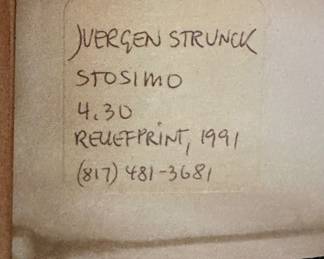 JUERGEN STRUNCK
STOSIMO
4.30
RELIEFPRINT, 1991
(817) 481-3681